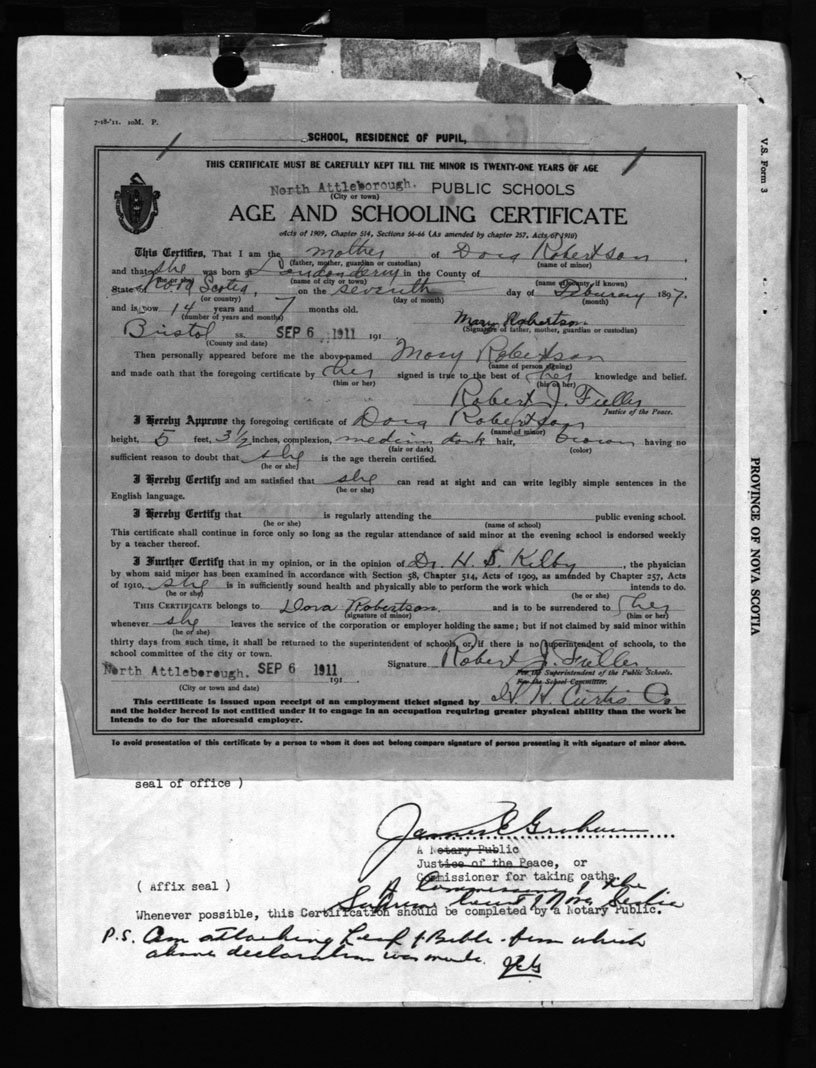 7-18-'11. 10M. P.
SCHOOL, RESIDENCE OF PUPIL,
THIS CERTIFICATE MUST BE CAREFULLY KEPT TILL THE MINOR IS TWENTY-ONE YEARS OF AGE
North Attleborough. PUBLIC SCHOOLS
(City or town)
AGE AND SCHOOLING CERTIFICATE
(Acts of 1909, Chapter 514, Sections 56-66 (As amended by chapter 257, Acts of 1910)
This Certifies, That I am the mother of Dora Robertson,
(father, mother, guardian or custodian) (name of minor)
and that she was born at Londonderry in the County of
(he or she) (name of city or town) (name of county, if known)
State of Nova Scotia, on the seventh day of Feburary 1897,
(or country) (day of month) (month)
and is now 14 years and 7 months old. Mary Robertson
(number of years and months) (Signature of father, mother, guardian or custodian)
Bristol ss. SEP 6 1911 191
(County and date)
Then personally appeared before me the above-named Mary Robertson
(name of person signing)
and made oath that the foregoing certificate by her signed is true to the best of her knowledge and belief.
(him or her) (his or her)
Robert J. Fuller
Justice of the Peace.
I Hereby Approve the foregoing certificate of Dora Robertson
(name of minor)
height, 5 feet, 3 1/2 inches, complexion, medium dark hair, brown having no
(fair or dark) (color)
sufficient reason to doubt that she is the age therein certified.
(he or she)
I Hereby Certify and am satisfied that she can read at sight and can write legibly simple sentences in the
(he or she)
English language.
I Hereby Certify that is regularly attending the public evening school.
(he or she) (name of school)
This certificate shall continue in force only so long as the regular attendance of said minor at the evening school is endorsed weekly
by a teacher thereof.
I Further Certify that in my opinion, or in the opinion of Dr. H. S. Kilby, the physician
by whom said minor has been examined in accordance with Section 58, Chapter 514, Acts of 1909, as amended by Chapter 257, Acts
of 1910, she is in sufficiently sound health and physically able to perform the work which intends to do.
(he or she) (he or she)
THIS CERTIFICATE belongs to Dora Robertson and is to be surrendered to her
(signature of minor) (him or her)
whenever she leaves the service of the corporation or employer holding the same; but if not claimed by said minor within
(he or she)
thirty days from such time, it shall be returned to the superintendent of schools, or, if there is no superintendent of schools, to the
school committee of the city or town.
North Attleborough. SEP 6 1911 191 Signature Robert J. Fuller
(City or town and date) For the Superintendent of the Public Schools.
For the School Committee.
This certificate is issued upon receipt of an employment ticket signed by H. H. Curtis Co
and the holder hereof is not entitled under it to engage in an occupation requiring greater physical ability than the work he
intends to do for the aforesaid employer.
To avoid presentation of this certificate by a person to whom it does not belong compare signature of person presenting it with signature of minor above.
V.S. Form 3
PROVINCE OF NOVA SCOTIA
seal of office )
James E Graham
A Notary Public
Justice of the Peace, or
Commissioner for taking oaths.
A Commissioner of the
( Affix seal )
Supreme Court of Nova Scotia
Whenever possible, this Certification should be completed by a Notary Public.
P.S. Am attaching Leaf of Bible from which
above declaration was made. JEG